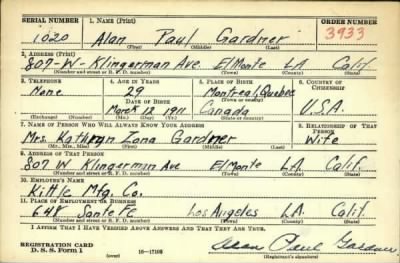 SERIAL NUMBER 1. NAME (Print) ORDER NUMBER
1020 Alan Paul Gardner 3933
(First) (Middle) (Last)
2. ADDRESS (Print)
807-W-Klingerman Ave. El Monte LA Calif
(Number and street or R. F. D. number) (Town) (County) (State)
3. TELEPHONE 4. AGE IN YEARS 5. PLACE OF BIRTH 6. COUNTRY OF CITIZENSHIP
None 29 Montreal, Quebec
DATE OF BIRTH (Town or county)
March 18 1911 Canada U.S.A.
(Exchange) (Number) (Mo.) (Day) (Yr.) (State or country)
7. NAME OF PERSON WHO WILL ALWAYS KNOW YOUR ADDRESS 8. RELATIONSHIP OF THAT PERSON
Mrs. Kathryn Zona Gardner Wife
(Mr., Mrs., Miss) (First) (Middle) (Last)
9. ADDRESS OF THAT PERSON
807 W Klingerman Ave El Monte LA Calif.
(Number and street or R. F. D. number) (Town) (County) (State)
10. EMPLOYER'S NAME
Kittle Mfg. Co.
11. PLACE OF EMPLOYMENT OR BUSINESS
648 Santa Fe Los Angeles LA. Calif.
(Number and street or R. F. D. number) (Town) (County) (State)
I AFFIRM THAT I HAVE VERIFIED ABOVE ANSWERS AND THAT THEY ARE TRUE.
REGISTRATION CARD
D. S. S. Form 1 (over) 16-17105 Alan Paul Gardner
(Registrant's signature)